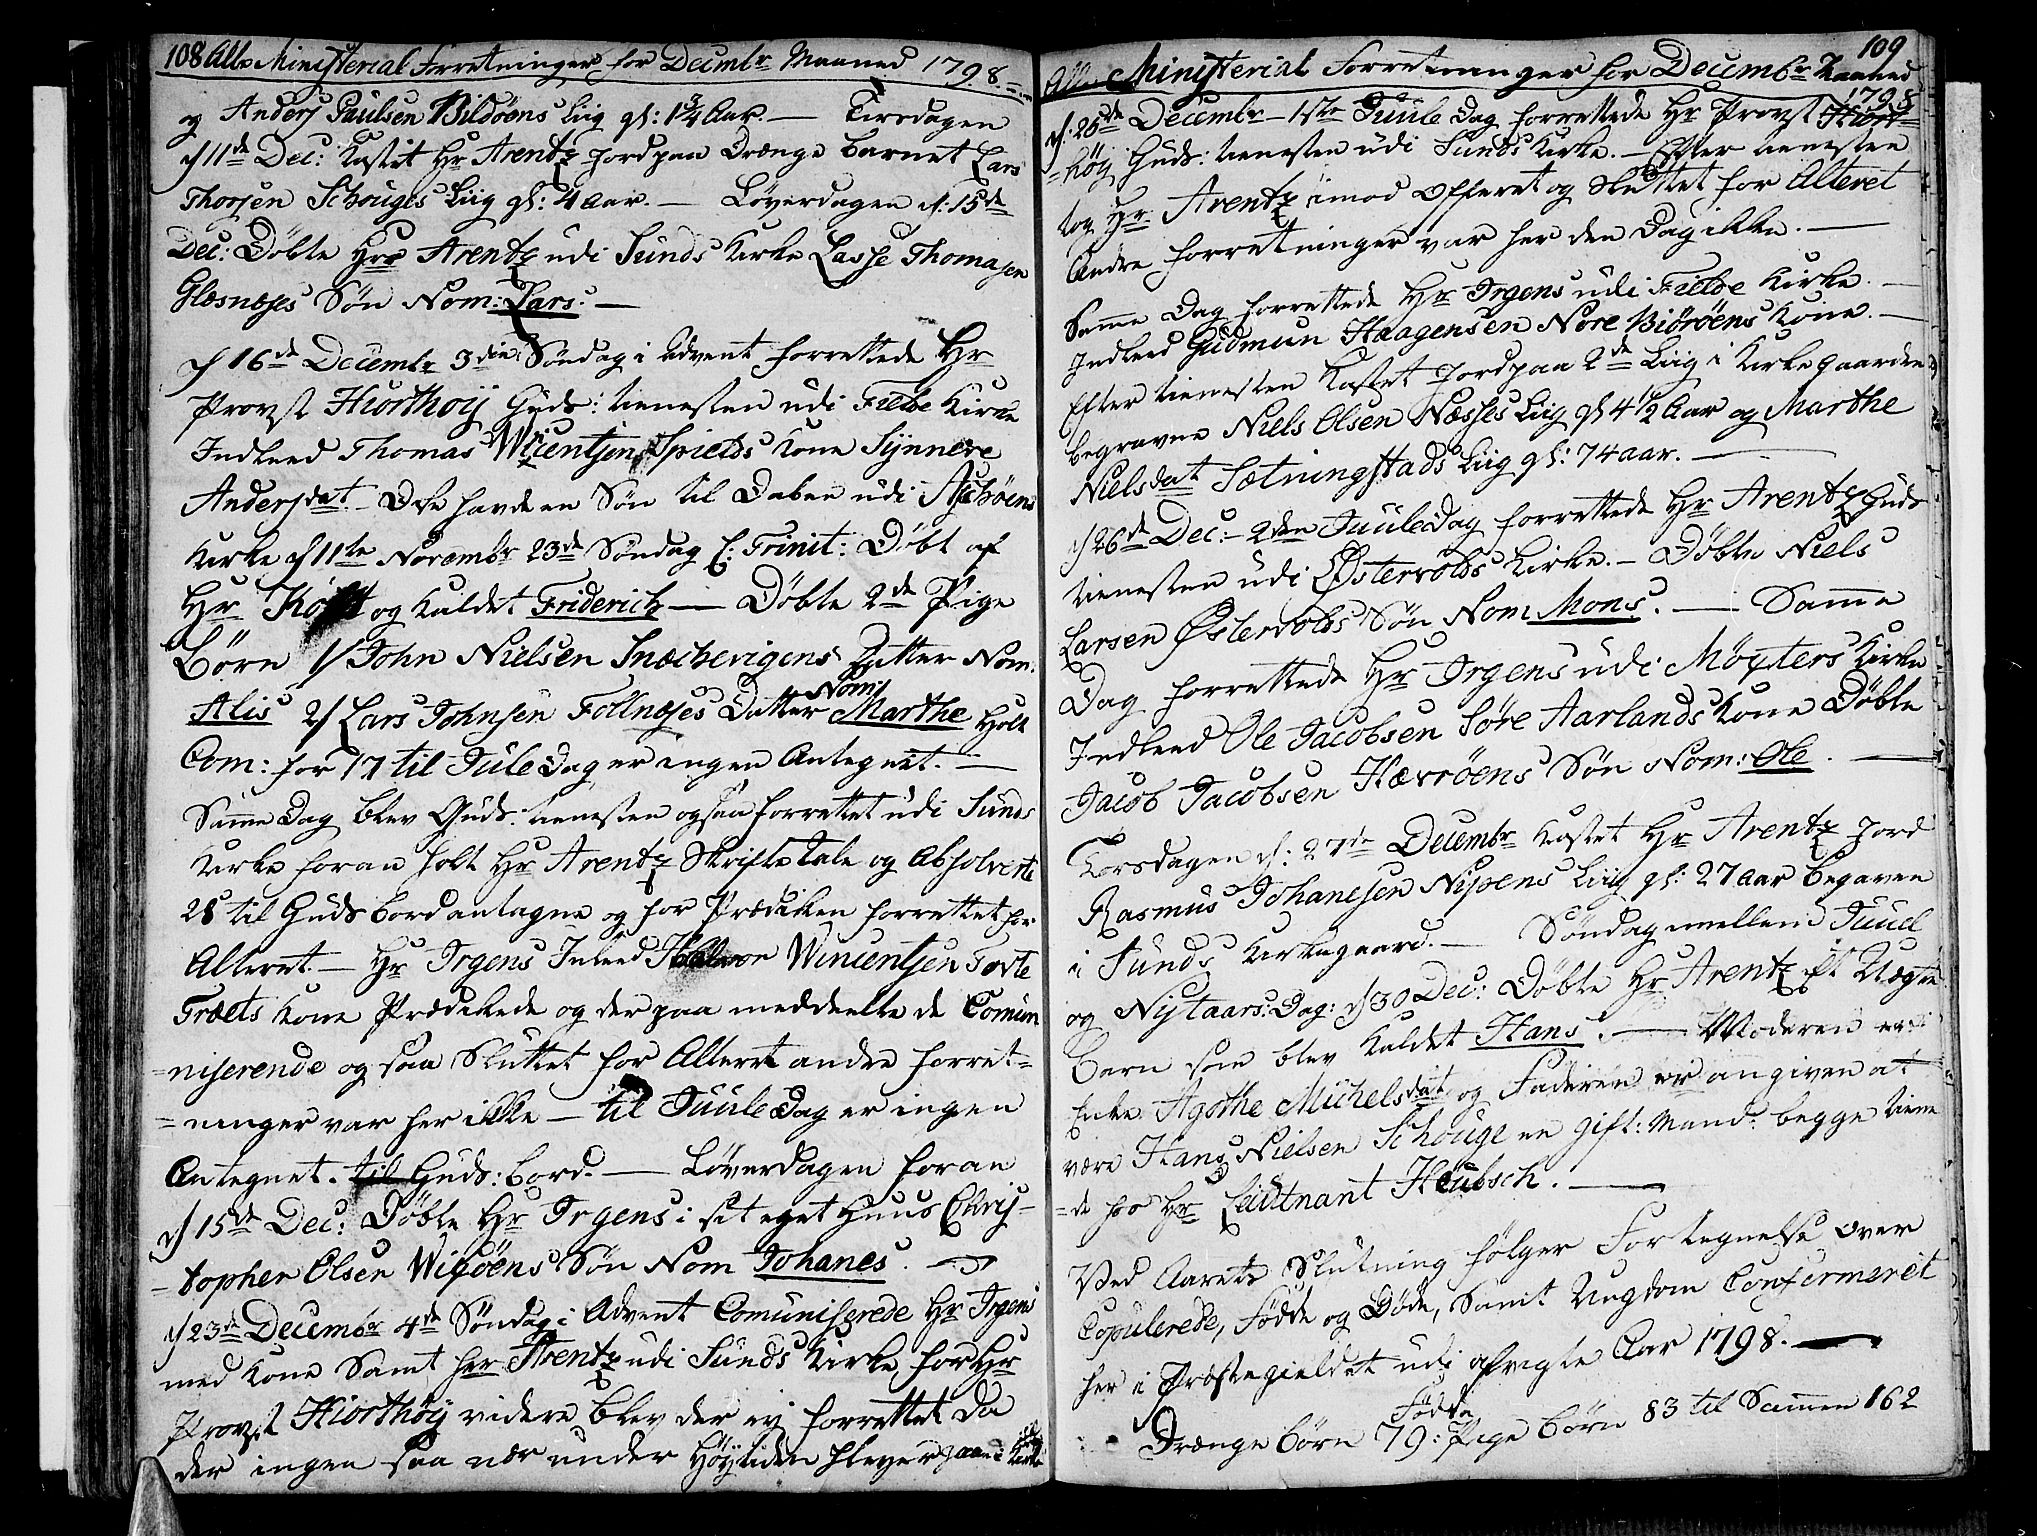 108 Alle Ministerial Forretninger for Decmbr Maaned 1798.
og Anders Paulsen Bildöens Liig gl: 1¾ Aar. — Tirsdagen
d 11de Dec: Kastet Hr Arentz Jord paa Drænge barnet Lars
Thorsen Schouges Liig gl: 4 Aar. — Löverdagen d: 15de
Dec: Döbte Hrr Arentz udi Sunds Kirke Lasse Thomasen
Glesnæses Sön Nom: Lars. —
d 16de Decembr 3die Söndag i Advent forrettede Hr
Provst Hiorthöij Guds: tienesten udi Fielde Kirke
Indleed Thomas Wicentsen Spields Kone Synneve
Andersdat. Disse havde en Sön til Daben udi
Kirke d 11te Novembr 23de Söndag E: Trinit: Döbt af
Hr Kofft og kaldet Friderich — Döbte 2de Pige
Börn 1/ John Nielsen Snechevigens Datter Nom:
Alis 2/ Lars Johnsen Follnæses Datter Nom: Marthe holt
Com: for 17 til Jule Dag er ingen Antegnet. —
Samme Dag blev Guds: tienesten ogsaa forrettet udi Sunds
Kirke foran holt Hr Arentz Skrifte tale og Absolverte
28 til Guds bord antagne og for Prædiken forrettet for
Alteret. — Hr Irgens Inleed Halvor Wincentsen Torte
Træets Kone Prædikede og der paa meddeelte de Comun
=niserende og saa Sluttet for Alteret andre forret=
=ninger var her ikke — til Juule Dag er ingen
Antegnet. til Guds: bord. — Löverdagen foran
d 15de Dec: Döbte Hr Irgens i sit eget Huus Chris-
-topher Olsen Wigöens Sön Nom Johanes. —
d 23de Decembr 4de Söndag i Advent Comuniserede Hr Irgens
med Kone Samt her Arentz udi Sunds Kirke, for Hr
Provst Hiorthöij videre blev der ej forrettet da
der ingen saa nær under Höytiden plejer gaae til Kirke
109
Alle Ministerial Forretninger for Decembr Maaned
1798
d: 25de Decembr 1ste Juule Dag forrettede Hr Provst Hiort=
=höy Guds: tienesten udi Sunds Kirke. — Efter tienesten
tog Hr Arentz imod Offeret og Sluttet for Alteret
Andre forretninger var her den Dag ikke. —
Samme Dag forrettede Hr Irgens udi Fielde Kirke. —
Indleed Gudmun Haagensen Nore Biöröens Kone. —
Efter tienesten Kastet Jord paa 2de Liig i Kirkegaarden
begravne Niels Olsen Næsses Liig gl 4½ Aar og Marthe
Nielsdat Sætningstads Liig gl: 74 aar. —
d 26de Dec: 2den Juule Dag forrettede Hr Arentz Guds
tienesten udi Östervolds Kirke. — Döbte Niels
Larsen Östervolds Sön Nom Mons. — Samme
Dag forrettede Hr Irgens udi Möysters Kirke
Indleed Ole Jacobsen Söre Aarlands Kone Döbte
Jacob Jacobsen Hævröens Sön Nom: Ole. —
Torsdagen d: 27de Decembr Kastet Hr Arentz Jord
Rasmus Johanesen Nipens Liig gl: 27 aar begraven
i Sunds Kirkegaard. — Söndag mellem Juul
og Nijtaars: Dag: d 30 Dec: Döbte Hr Arentz Et Uægte
Barn som blev Kaldet Hans. — Moderen er
Enke Agothe Michelsdat og Faderen er angiven at
være Hans Nielsen Schouge en gift: Mand: begge tiene
=de hos Hr Leiutnant Heubsch. —
Ved Aarets Slutning fölger Fortegnelse over
Copulerede, Födde og Döde, Samt Ungdom Confermerit
her i Præstegieldet udi afvigte Aar 1798. —
Födde
Drænge Börn 79: Pige Börn 83 til Sammen 162